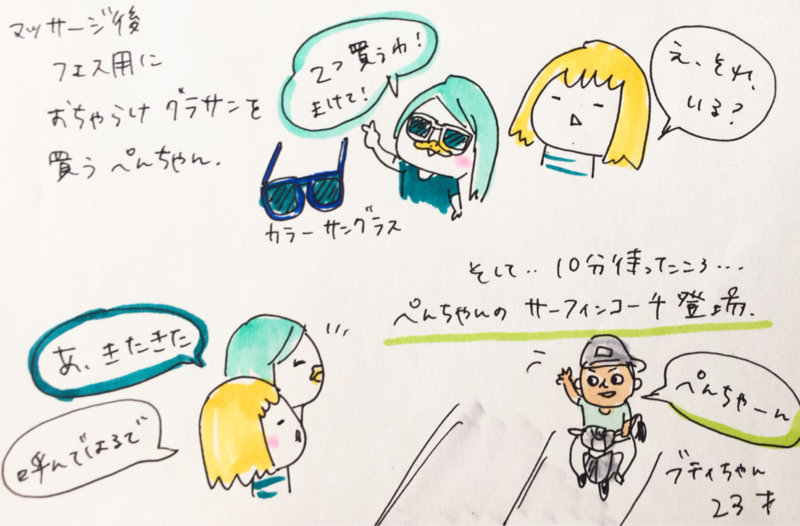 マッサージ後
フェス用に
おちゃらけ グラサンを
買う ぺんちゃん.
2つ買うわ!
まけて!
え、それ、
いる?
カラー サングラス
そして‥10分待ったころ…
ぺんちゃんの サーフィンコーチ 登場.
あ、きたきた
呼んではるで
ぺんちゃーん
ブティちゃん
23才